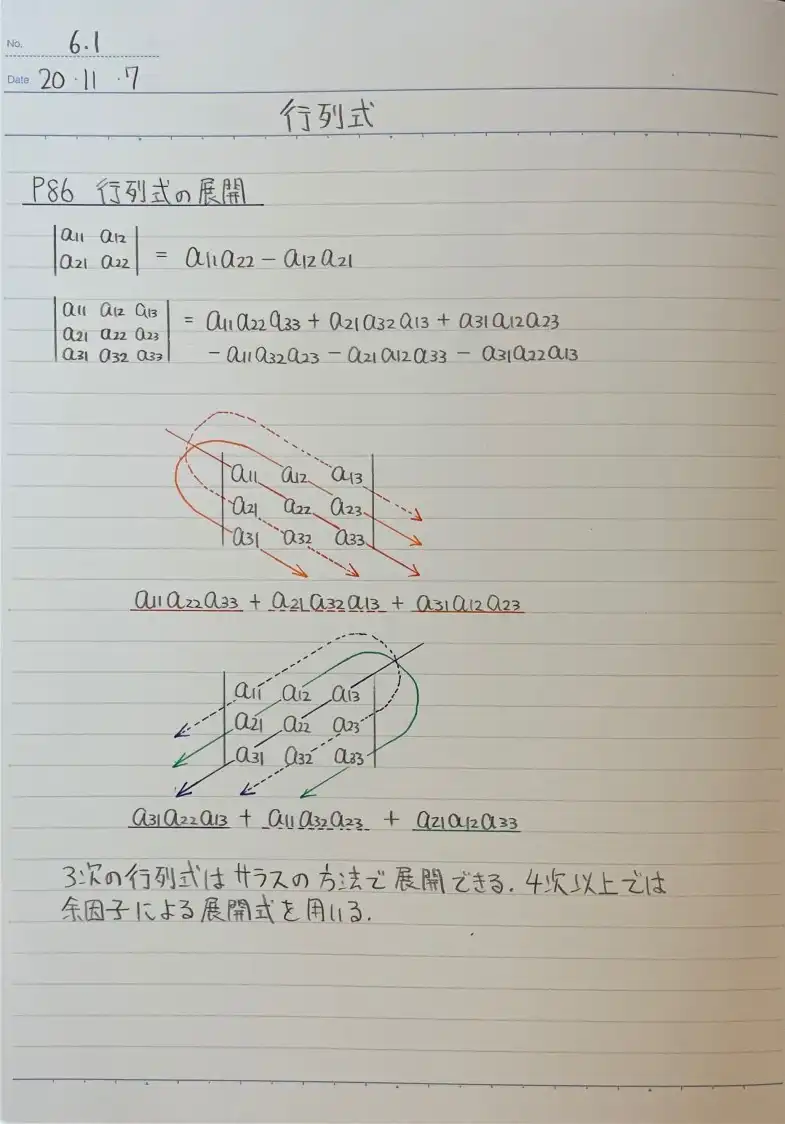 No. 6.1
Date 20・11・7
行列式
P86 行列式の展開
|a11 a12|
|a21 a22| = a11a22 − a12a21
|a11 a12 a13|
|a21 a22 a23| = a11a22a33 + a21a32a13 + a31a12a23
|a31 a32 a33| − a11a32a23 − a21a12a33 − a31a22a13
a11 a12 a13
a21 a22 a23
a31 a32 a33
a11a22a33 + a21a32a13 + a31a12a23
a11 a12 a13
a21 a22 a23
a31 a32 a33
a31a22a13 + a11a32a23 + a21a12a33
3次の行列式はサラスの方法で展開できる. 4次以上では
余因子による展開式を用いる.